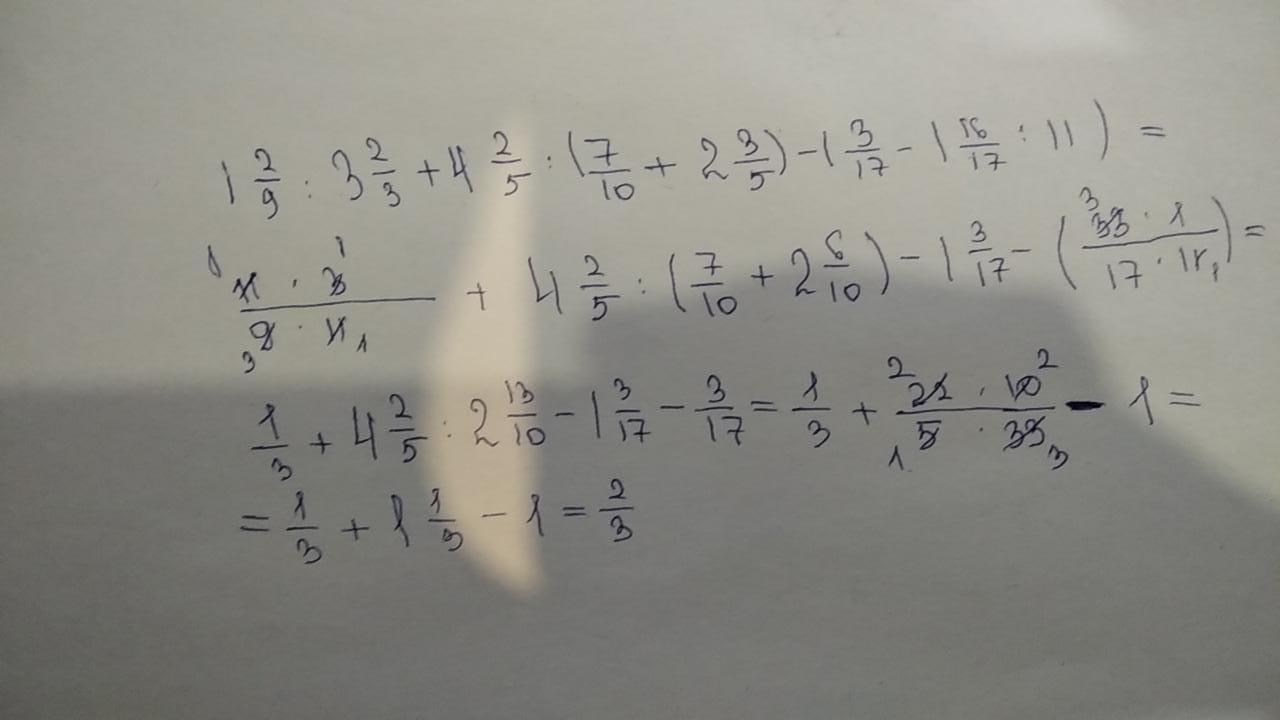 1 2/9 : 3 2/3 + 4 2/5 : (7/10 + 2 3/5) - (1 3/17 - 1 16/17 : 11) =
(11 · 3)/(9 · 11) + 4 2/5 : (7/10 + 2 6/10) - 1 3/17 - ((33 · 1)/(17 · 11)) =
1/3 + 4 2/5 : 2 13/10 - 1 3/17 - 3/17 = 1/3 + (22 · 10)/(5 · 33) - 1 =
= 1/3 + 1 1/3 - 1 = 2/3